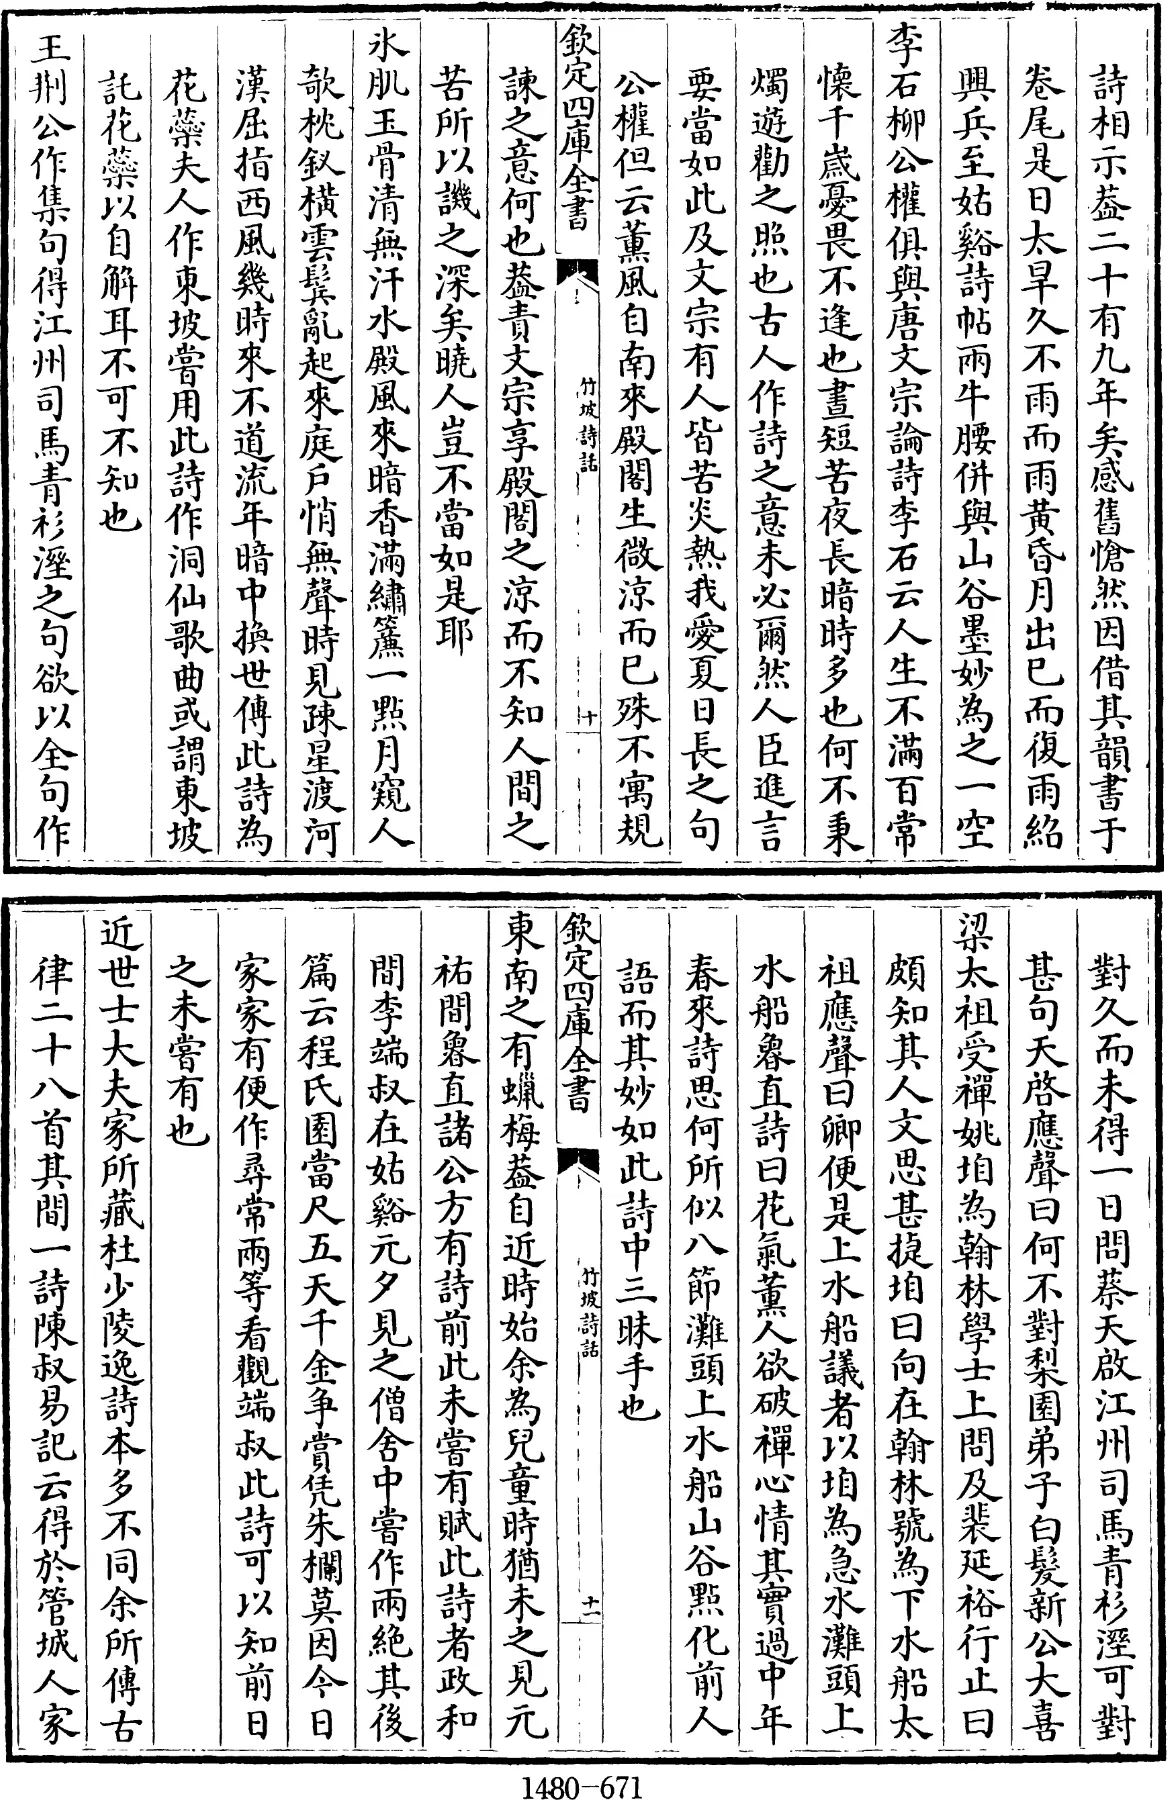 詩相示葢二十有九年矣感舊愴然因借其韻書于
卷尾是日太旱久不雨而雨黄昏月出已而復雨紹
興兵至姑谿詩帖兩牛腰併與山谷墨妙為之一空
李石柳公權俱與唐文宗論詩李石云人生不滿百常
懷千嵗憂畏不逢也晝短苦夜長暗時多也何不秉
燭遊勸之照也古人作詩之意未必爾然人臣進言
要當如此及文宗有人皆苦炎熱我愛夏日長之句
公權但云薰風自南來殿閣生微涼而已殊不寓規
欽定四庫全書
竹坡詩話
十
諫之意何也葢責文宗享殿閣之涼而不知人間之
苦所以譏之深矣曉人豈不當如是耶
氷肌玉骨清無汗水殿風來暗香滿繡簾一㸃月窺人
欹枕釵橫雲鬢亂起來庭戶悄無聲時見疎星渡河
漢屈指西風幾時來不道流年暗中換世傳此詩為
花蘂夫人作東坡嘗用此詩作洞仙歌曲或謂東坡
託花蘂以自解耳不可不知也
王荆公作集句得江州司馬青衫溼之句欲以全句作
對久而未得一日問蔡天啟江州司馬青衫溼可對
甚句天啓應聲曰何不對梨園弟子白髮新公大喜
梁太祖受禪姚垍為翰林學士上問及裴延裕行止曰
頗知其人文思甚㨗垍曰向在翰林號為下水船太
祖應聲曰卿便是上水船議者以垍為急水灘頭上
水船魯直詩曰花氣薰人欲破禪心情其實過中年
春來詩思何所似八節灘頭上水船山谷㸃化前人
語而其妙如此詩中三昧手也
欽定四庫全書
竹坡詩話
十一
東南之有蠟梅葢自近時始余為兒童時猶未之見元
祐間魯直諸公方有詩前此未嘗有賦此詩者政和
間李端叔在姑谿元夕見之僧舍中嘗作兩絶其後
篇云程氏園當尺五天千金争賞凭朱欄莫因今日
家家有便作尋常兩等看觀端叔此詩可以知前日
之未嘗有也
近世士大夫家所藏杜少陵逸詩本多不同余所傳古
律二十八首其間一詩陳叔易記云得於管城人家
1480-671